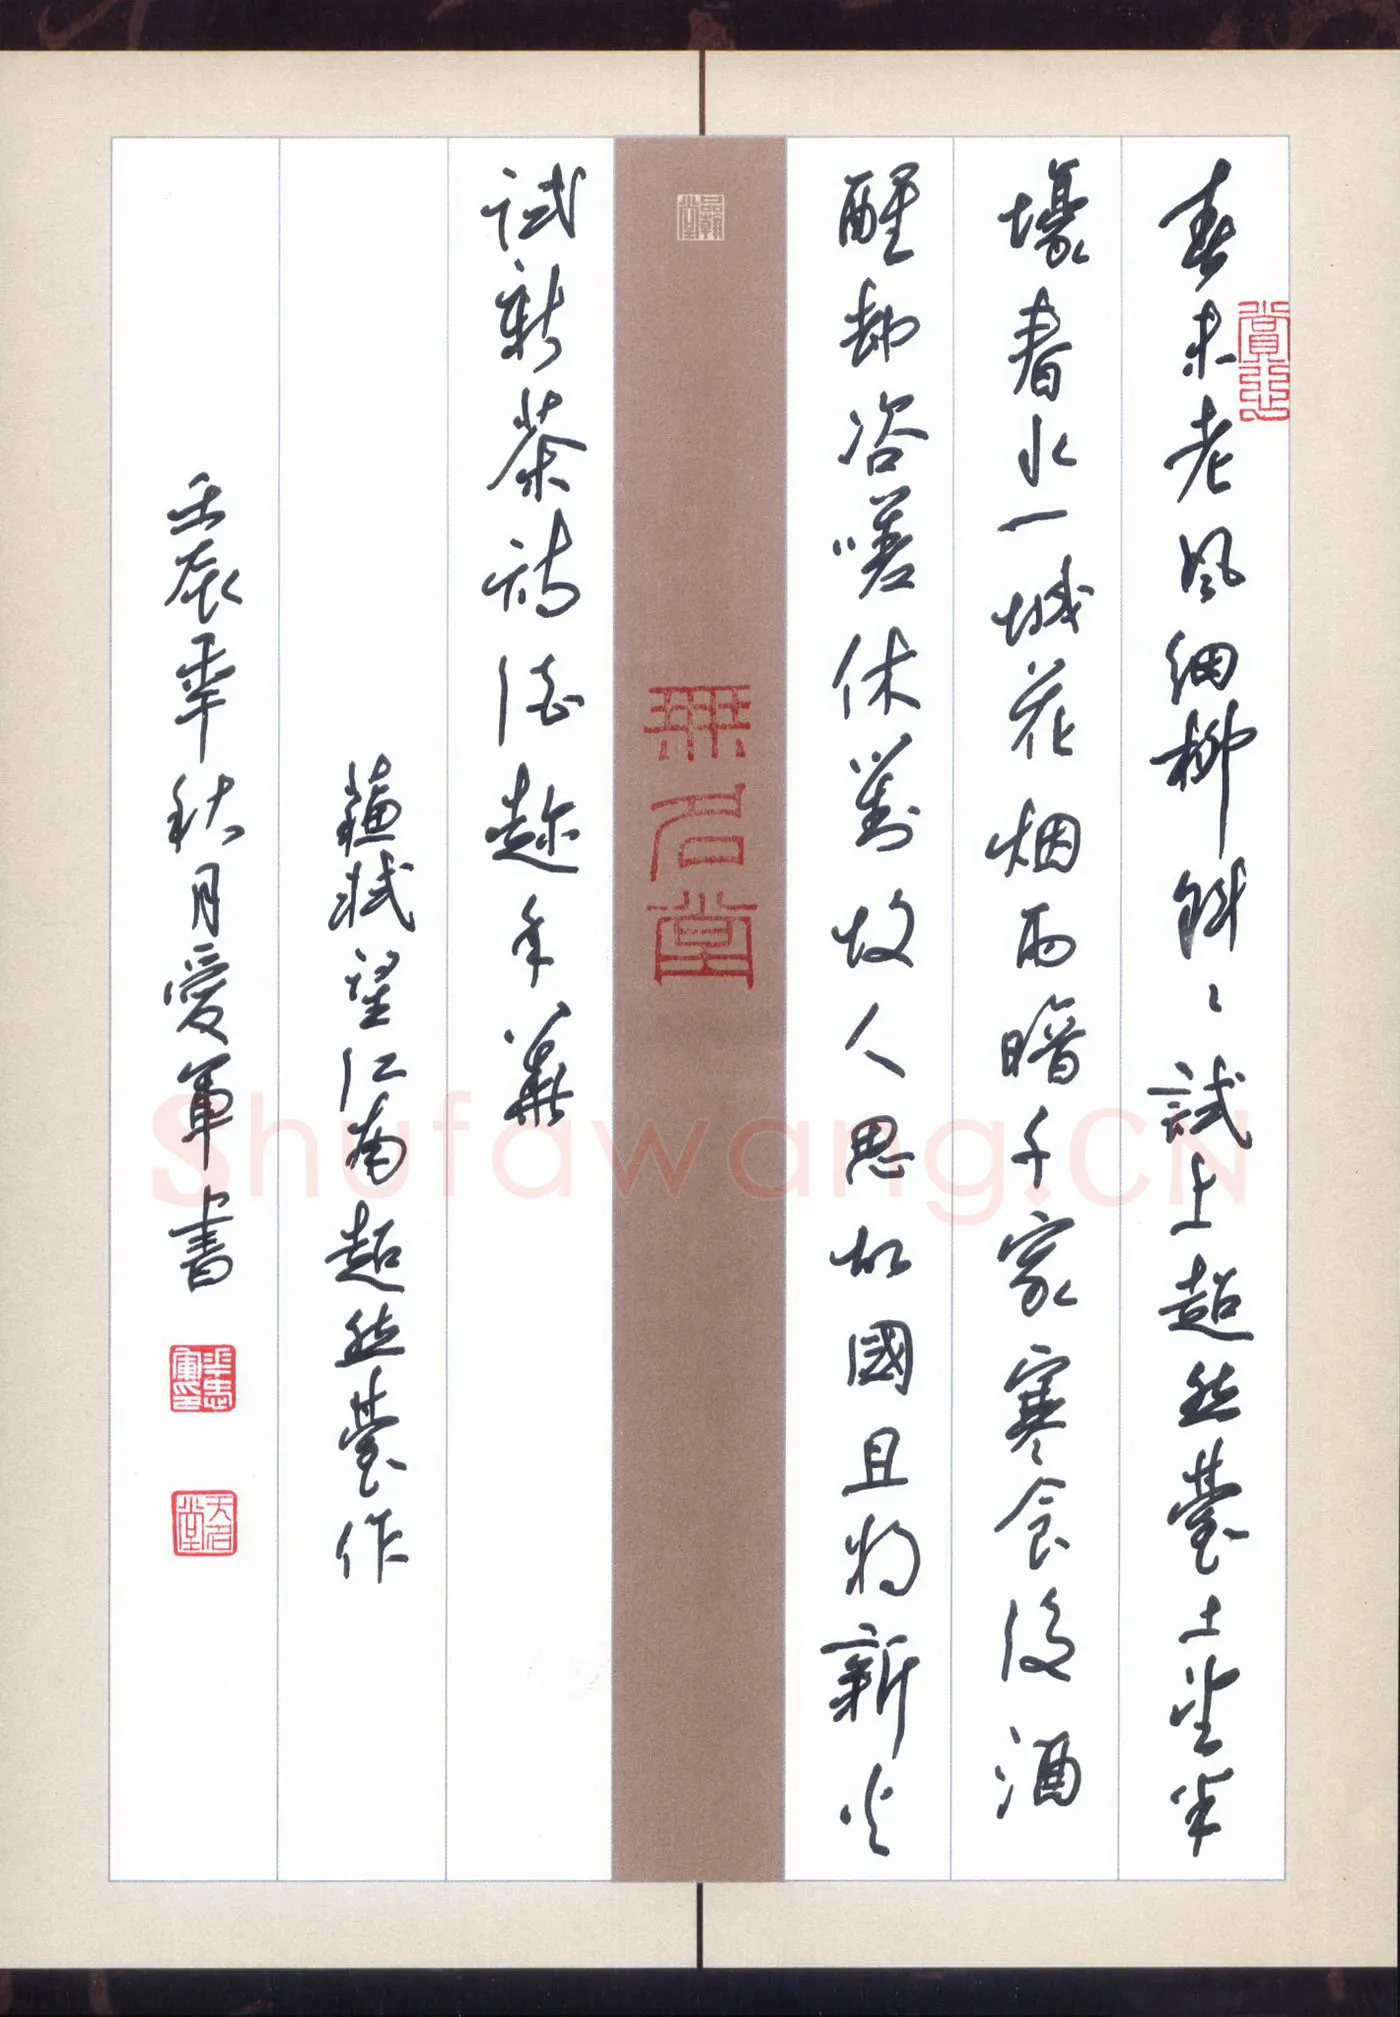 春未老風細柳斜〻試上超然臺上望半
壕春水一城花烟雨暗千家寒食後酒
醒却咨嗟休對故人思故國且将新火
無名堂
試新茶詩酒趁年華
蘇軾望江南超然臺作
壬辰年秋月愛軍書
无名堂
Shufawang.CN